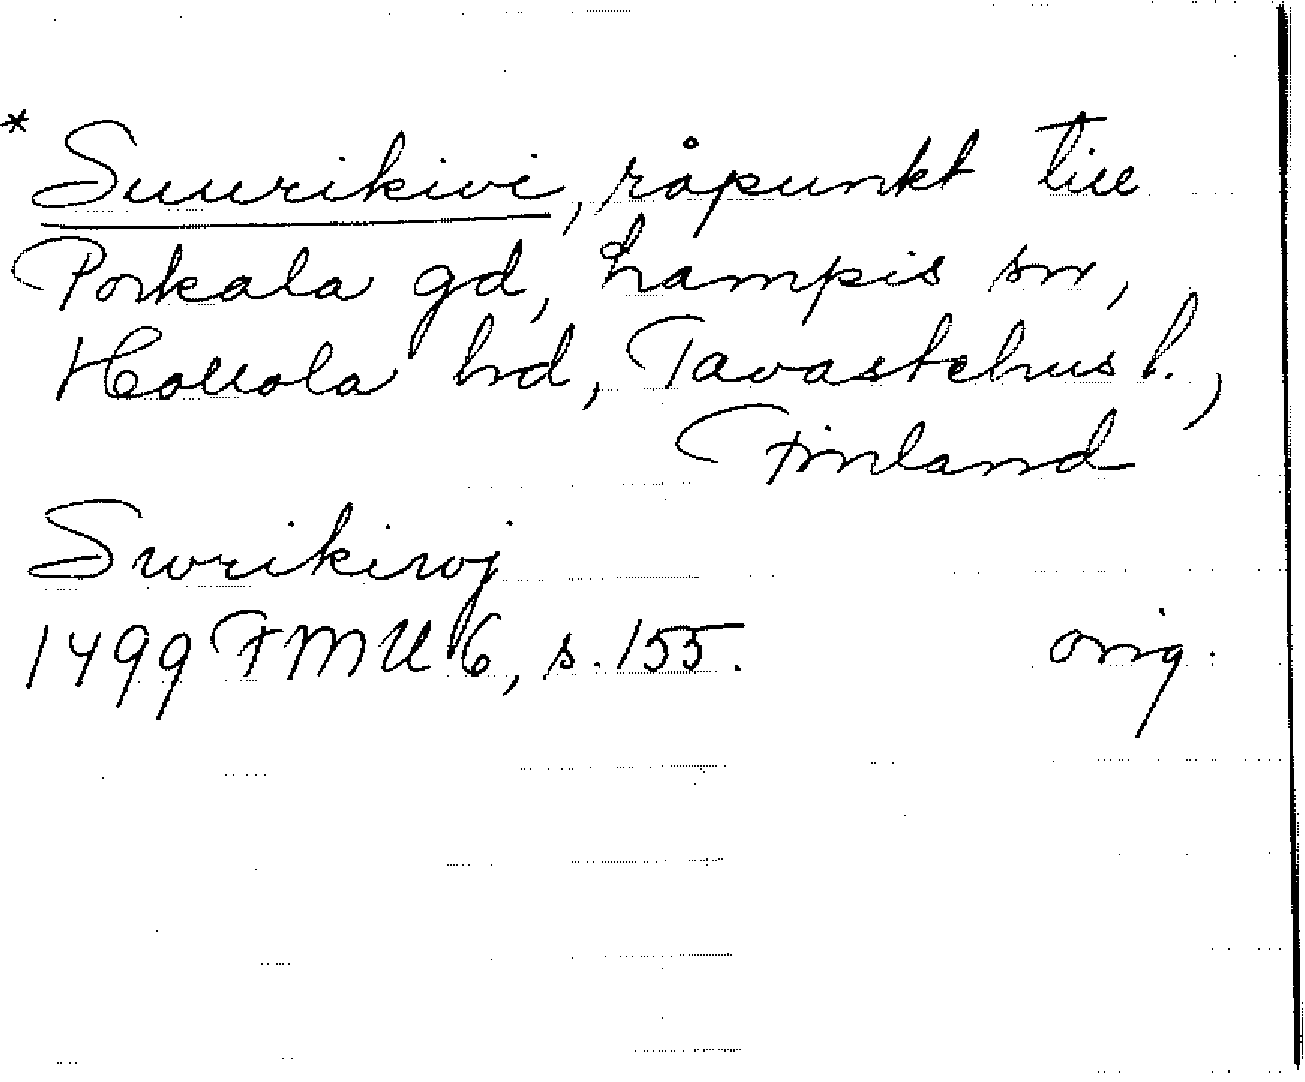 * Suurikivi, råpunkt till
Porkala gd, Lampis sn,
Hollola hd, Tavastehus l.,
Finland
Swrikiwj
1499 FMU 6, s. 155. orig.